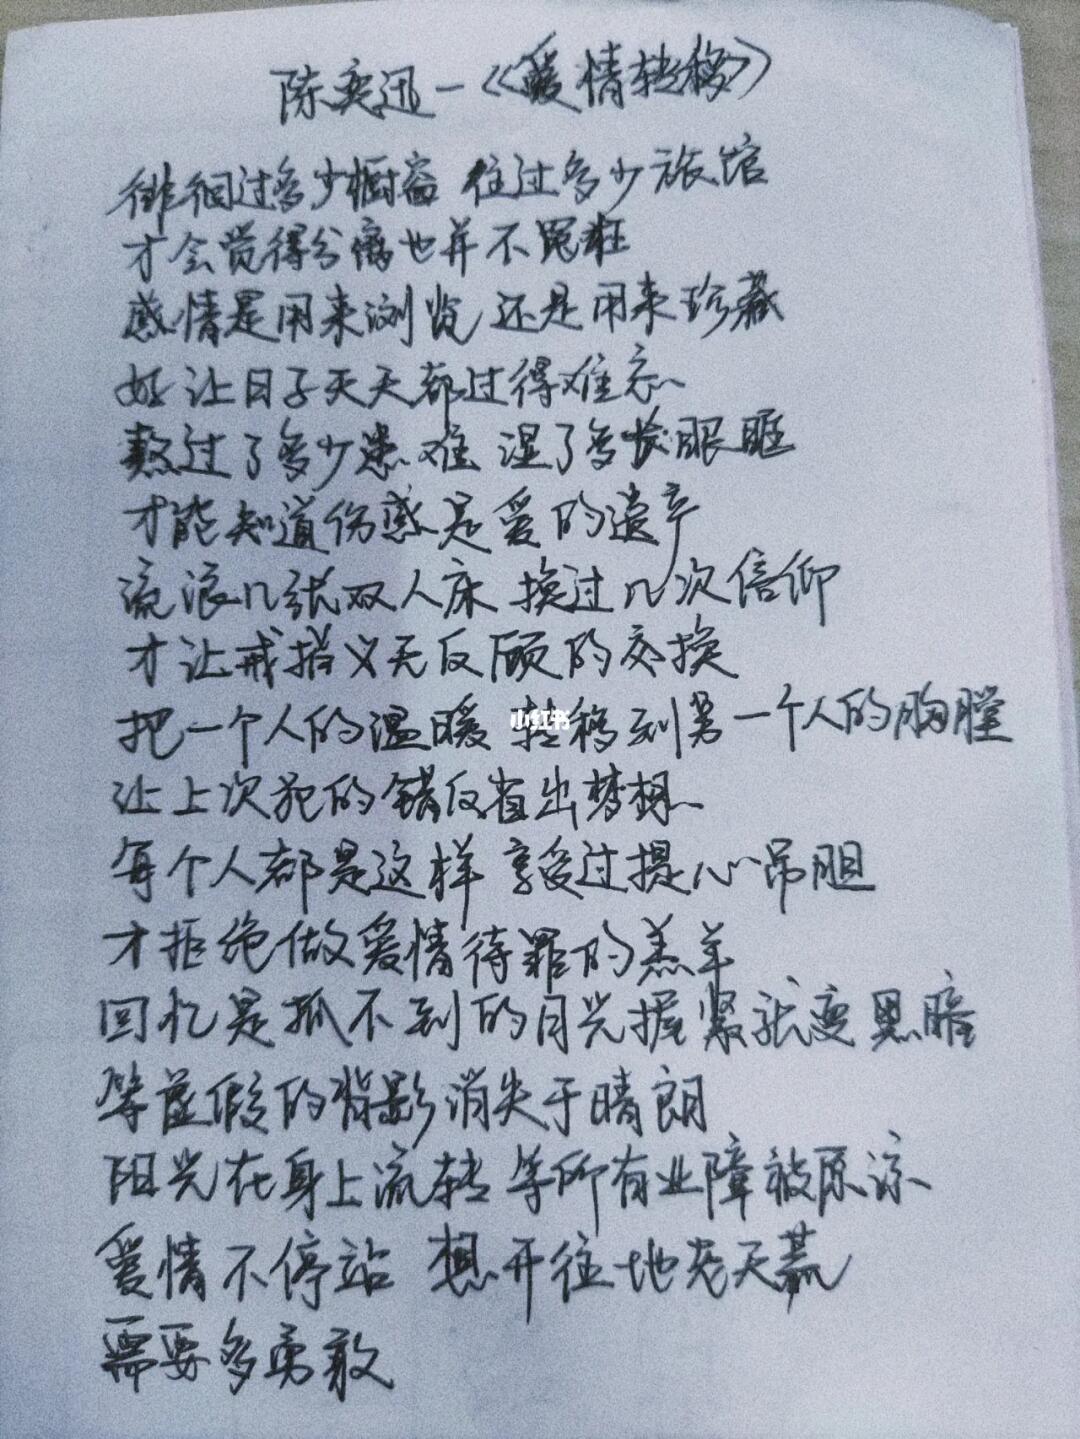 陈奕迅-《爱情转移》
徘徊过多少橱窗 住过多少旅馆
才会觉得分离也并不冤枉
感情是用来浏览 还是用来珍藏
好让日子天天都过得难忘
熬过了多少患难 湿了多长眼眶
才能知道伤感是爱的遗产
流浪几张双人床 换过几次信仰
才让戒指义无反顾的交换
把一个人的温暖 转移到另一个人的胸膛
让上次犯的错反省出梦想
每个人都是这样 享受过提心吊胆
才拒绝做爱情待罪的羔羊
回忆是抓不到的月光握紧就变黑暗
等虚假的背影消失于晴朗
阳光在身上流转 等所有业障被原谅
爱情不停站 想开往地老天荒
需要多勇敢
小红书